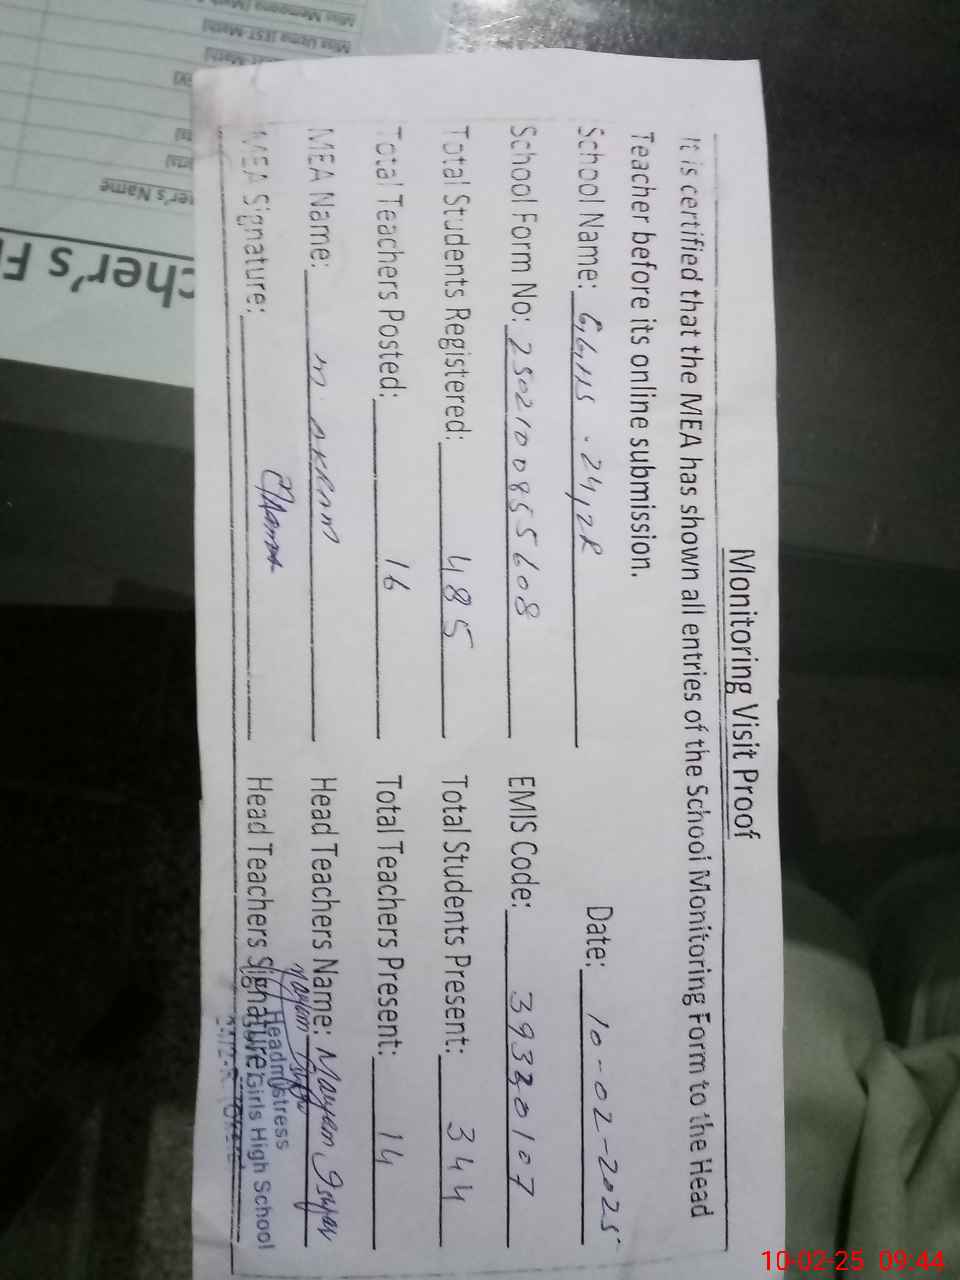 Monitoring Visit Proof
It is certified that the MEA has shown all entries of the School Monitoring Form to the Head
Teacher before its online submission.
School Name: G.G.H.S . 24,2R Date: 10-02-2025
School Form No: 25021008555608 EMIS Code: 39320107
Total Students Registered: 485 Total Students Present: 344
Total Teachers Posted: 16 Total Teachers Present: 14
MEA Name: M. AKRAM Head Teachers Name: Maryam
MEA Signature: Head Teachers Signature:
Headmistress
Girls High School
10-02-25 09:44
cher's F
er's Name